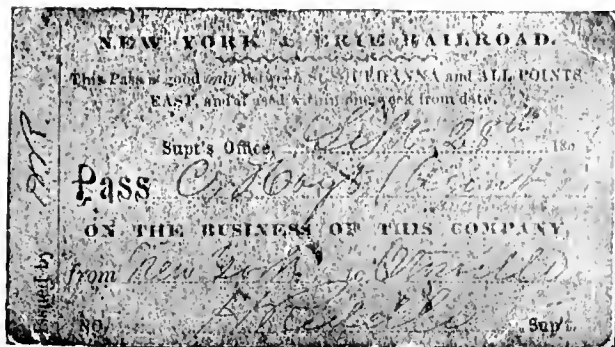 NEW YORK & ERIE RAILROAD.
This Pass is good only between SUSQUEHANNA and ALL POINTS
EAST, and if used within one week from date.
Supt's Office, Sept. 28th 185
Pass C. Hoyt
ON THE BUSINESS OF THIS COMPANY,
from New York to
No. Sup't.
Issued by